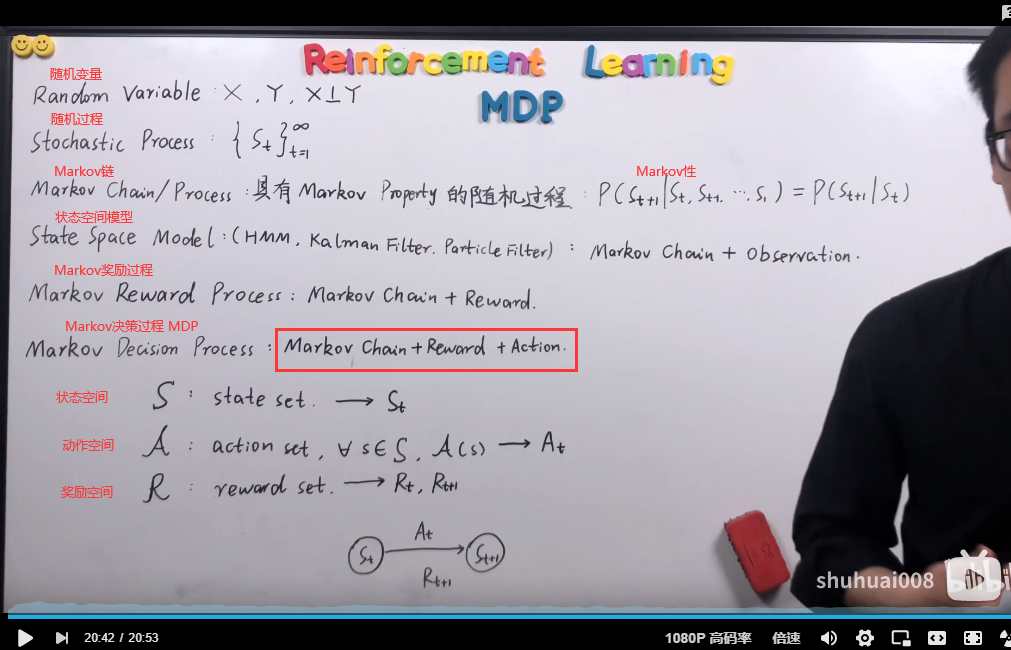 Reinforcement Learning
MDP
随机变量
Random Variable : X , Y , X⊥Y
随机过程
Stochastic Process : { St }∞t=1
Markov链
Markov性
Markov Chain/Process : 具有 Markov Property 的随机过程 : P(St+1|St, St-1, ..., S1) = P(St+1|St)
状态空间模型
State Space Model : (HMM, Kalman Filter, Particle Filter) : Markov Chain + Observation.
Markov奖励过程
Markov Reward Process : Markov Chain + Reward.
Markov决策过程 MDP
Markov Decision Process : Markov Chain + Reward + Action.
状态空间
S : state set. → St
动作空间
A : action set, ∀ s∈S, A(s) → At
奖励空间
R : reward set. → Rt, Rt+1
At
St → St+1
Rt+1
shuhuai008 bilibili
20:42 / 20:53 1080P 高码率 倍速